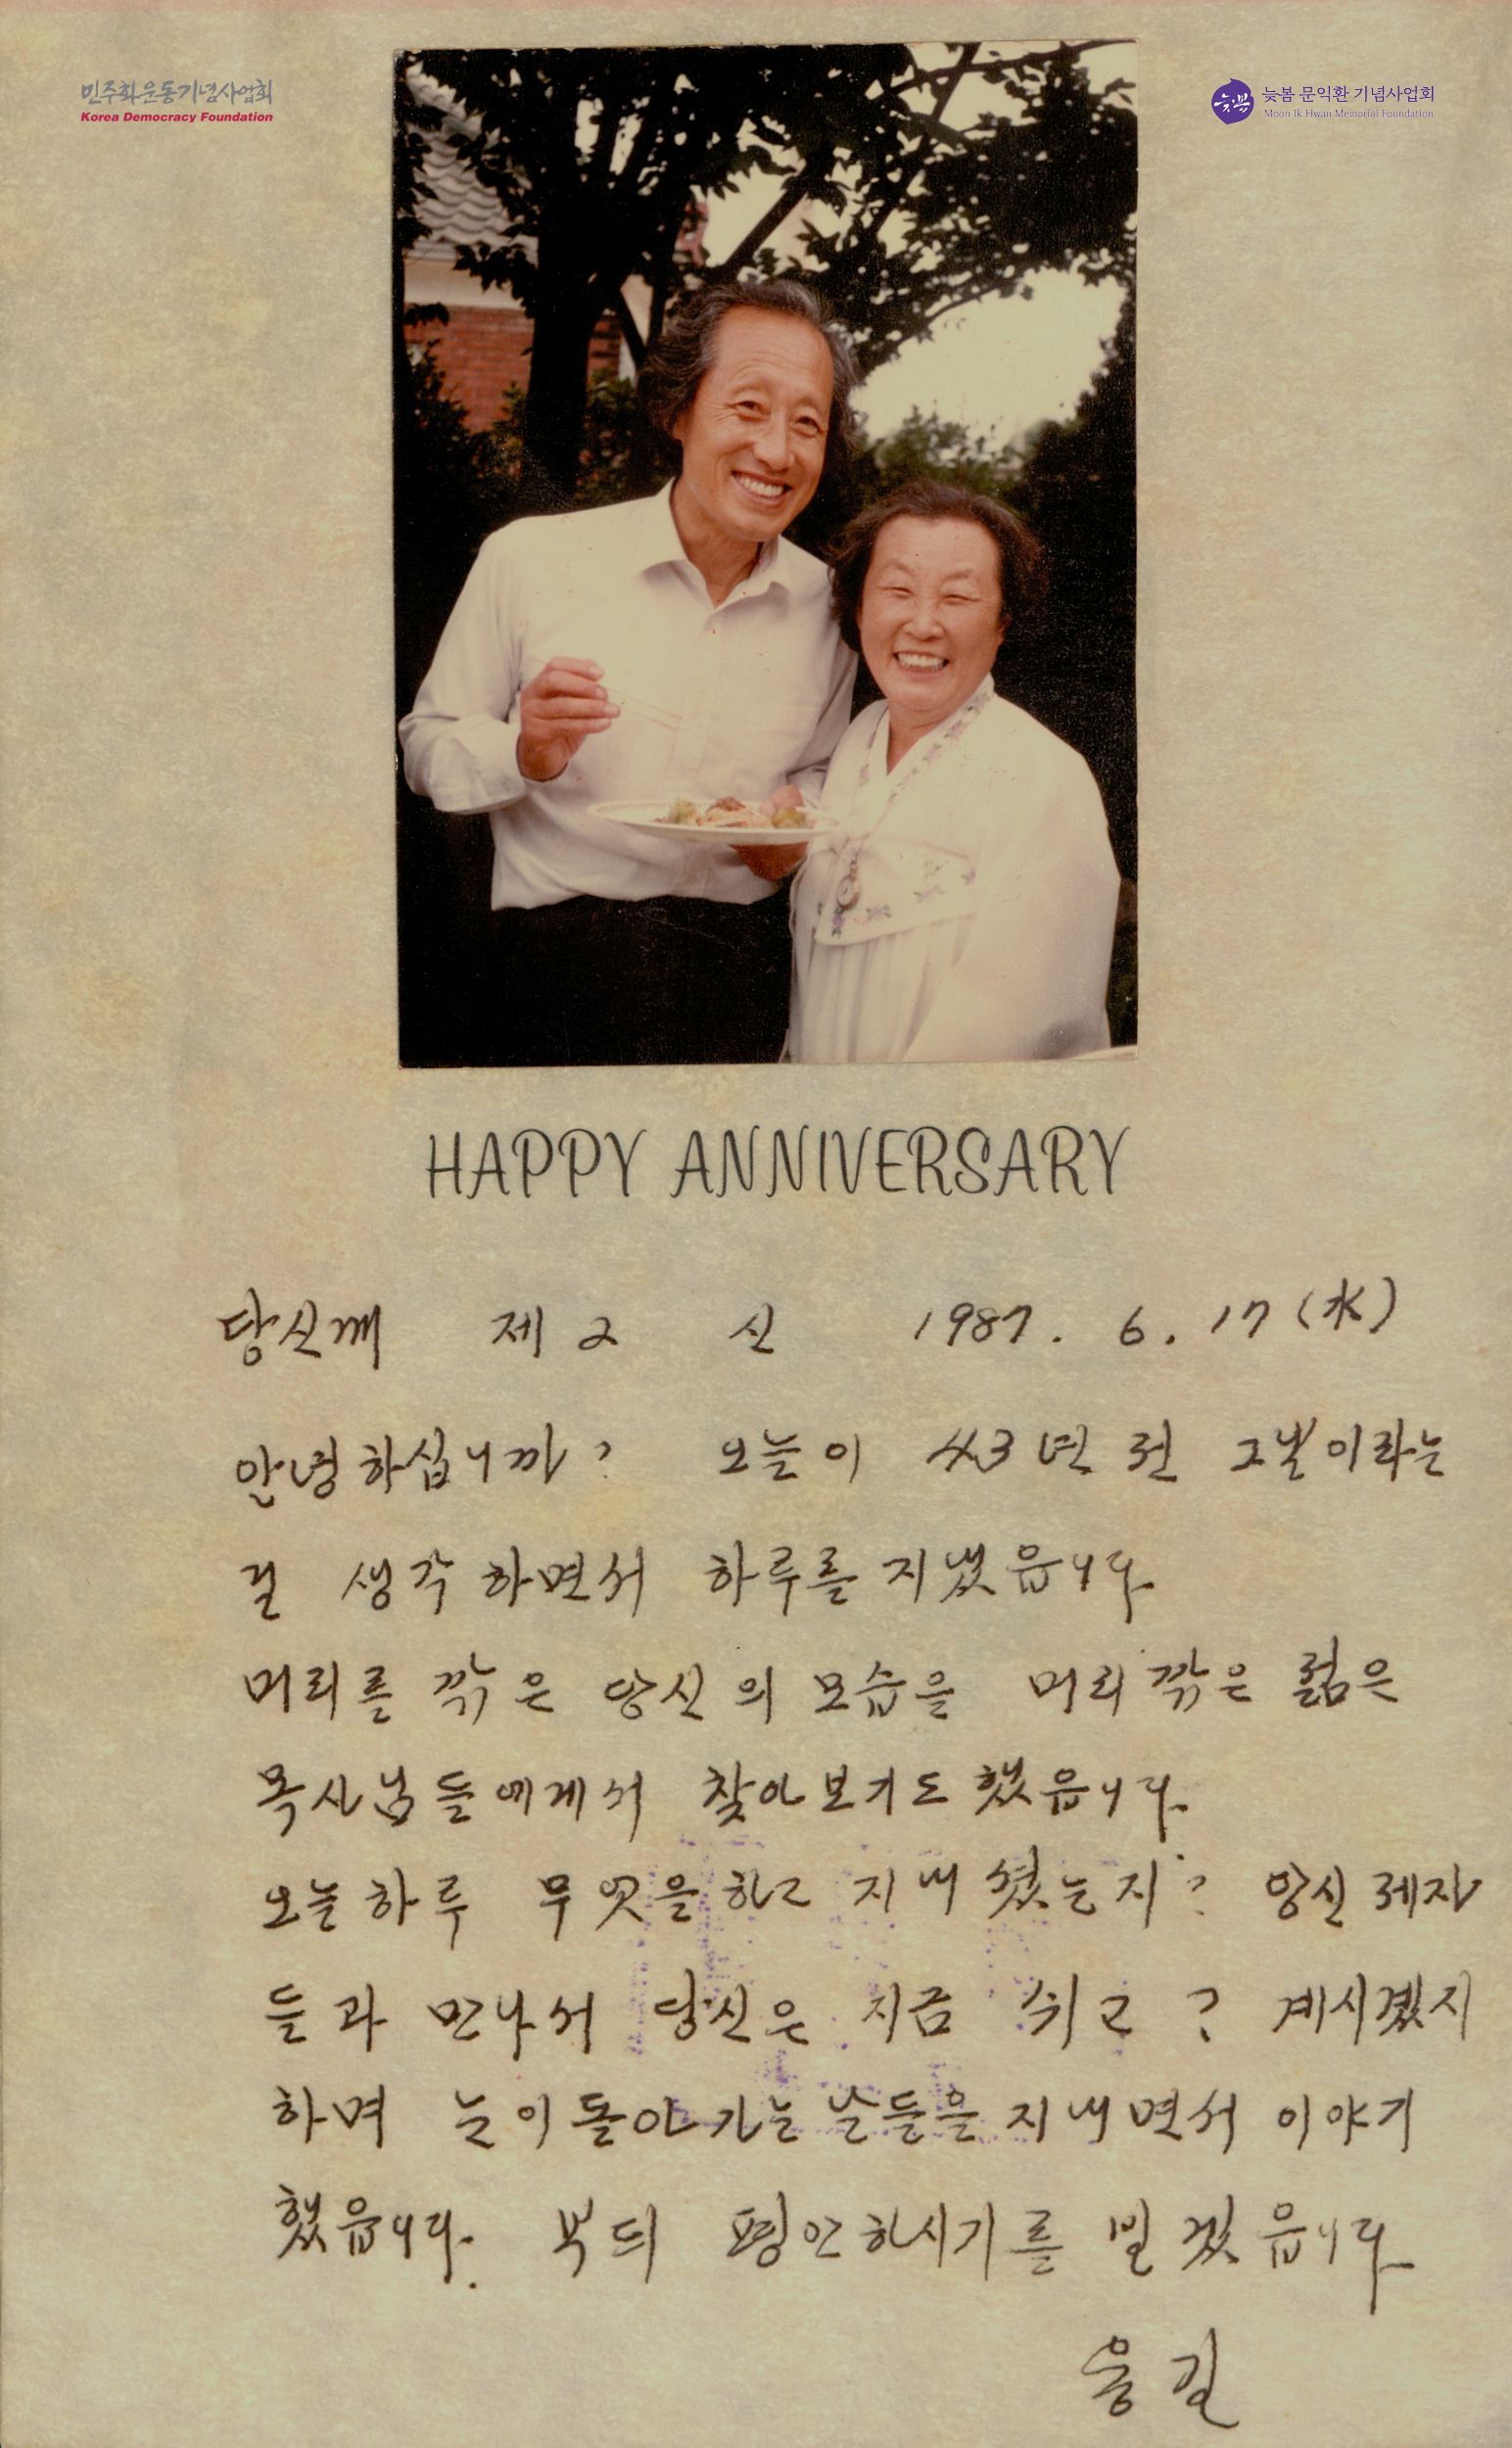 민주화운동기념사업회
Korea Democracy Foundation
늦봄
늦봄 문익환 기념사업회
Moon Ik Hwan Memorial Foundation
HAPPY ANNIVERSARY
당신께 제 2 신 1987. 6. 17 (水)
안녕하십니까? 오늘이 43년 전 그날이라는
걸 생각하면서 하루를 지냈읍니다.
머리를 깎은 당신의 모습을 머리 깎은 젊은
목사님들에게서 찾아보기도 했읍니다.
오늘하루 무엇을 하고 지내셨는지? 당신 제자
들과 만나서 당신은 지금 쉬고? 계시겠지
하며 눈이 돌아가는 날들을 지내면서 이야기
했읍니다. 부디 평안하시기를 빌겠읍니다.
용길